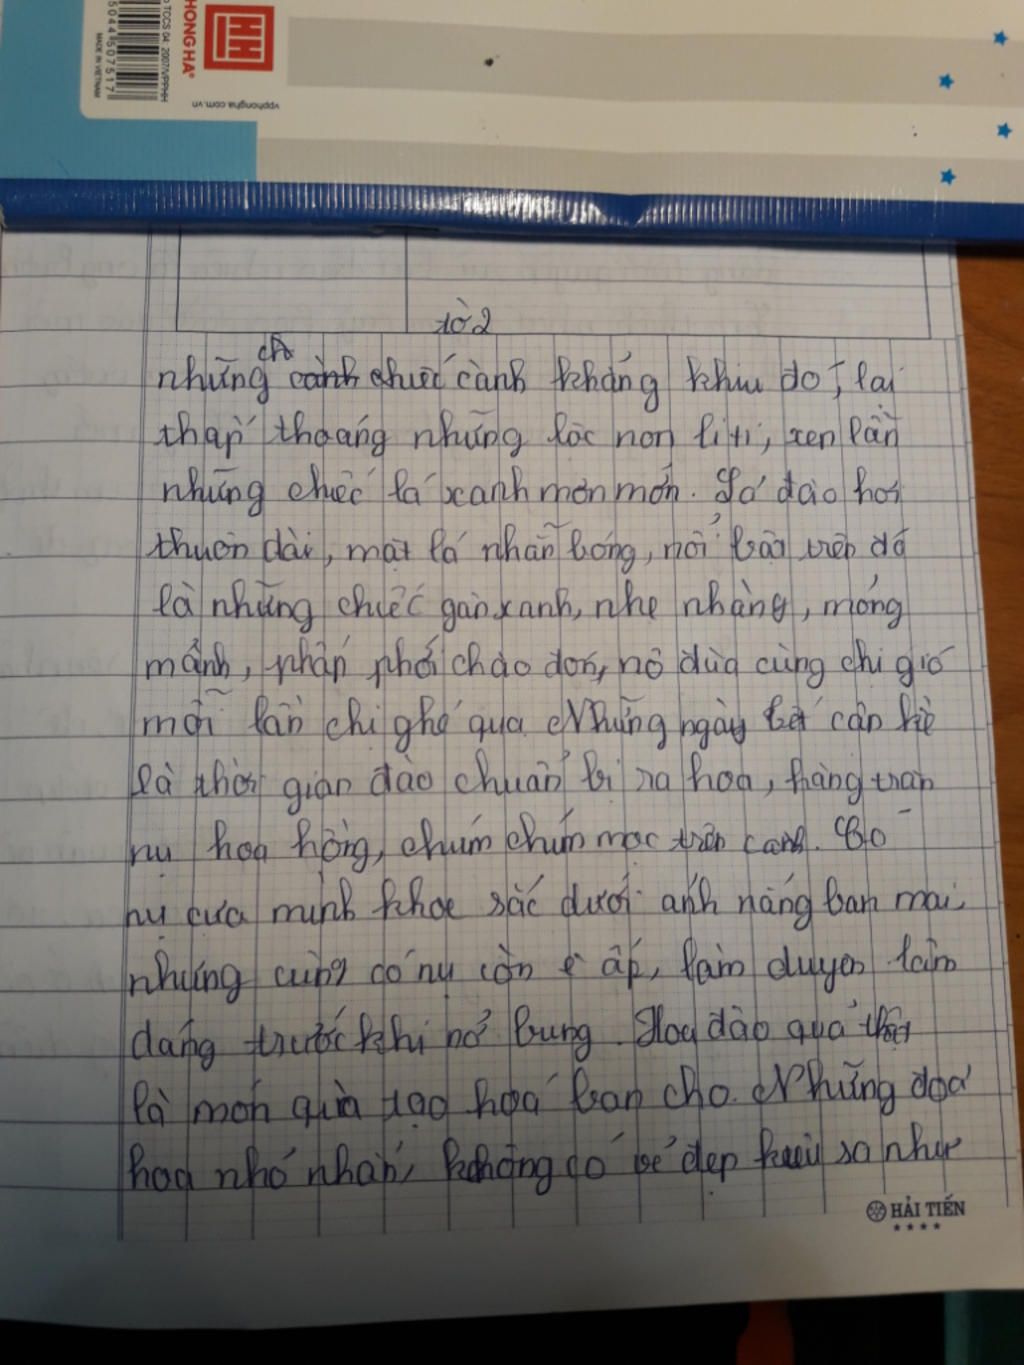 HONG HA®
TCCS 04 2007/VPPHH
5044 507517
MADE IN VIETNAM
vpphongha.com.vn
tờ 2
những cành chiếc cành khẳng khiu đó, lại
thấp thoáng những lộc non li ti, xen lẫn
những chiếc lá xanh mơn mởn. Lá đào hơi
thuôn dài, mặt lá nhẵn bóng, nổi bật trên đó
là những chiếc gân xanh, nhẹ nhàng, mỏng
mảnh, phấp phới chào đón, nô đùa cùng chị gió
mỗi lần chị ghé qua. Những ngày tết cận kề
là thời gian đào chuẩn bị ra hoa, hàng tràn
nụ hoa hồng, chúm chím mọc trên cành. Có
nụ cựa mình khoe sắc dưới ánh nắng ban mai,
nhưng cũng có nụ còn e ấp, làm duyên làm
dáng trước khi nở bung. Hoa đào quả thật
là món quà tạo hoá ban cho. Những đoá
hoa nhỏ nhắn, không có vẻ đẹp kiêu sa như
HẢI TIẾN